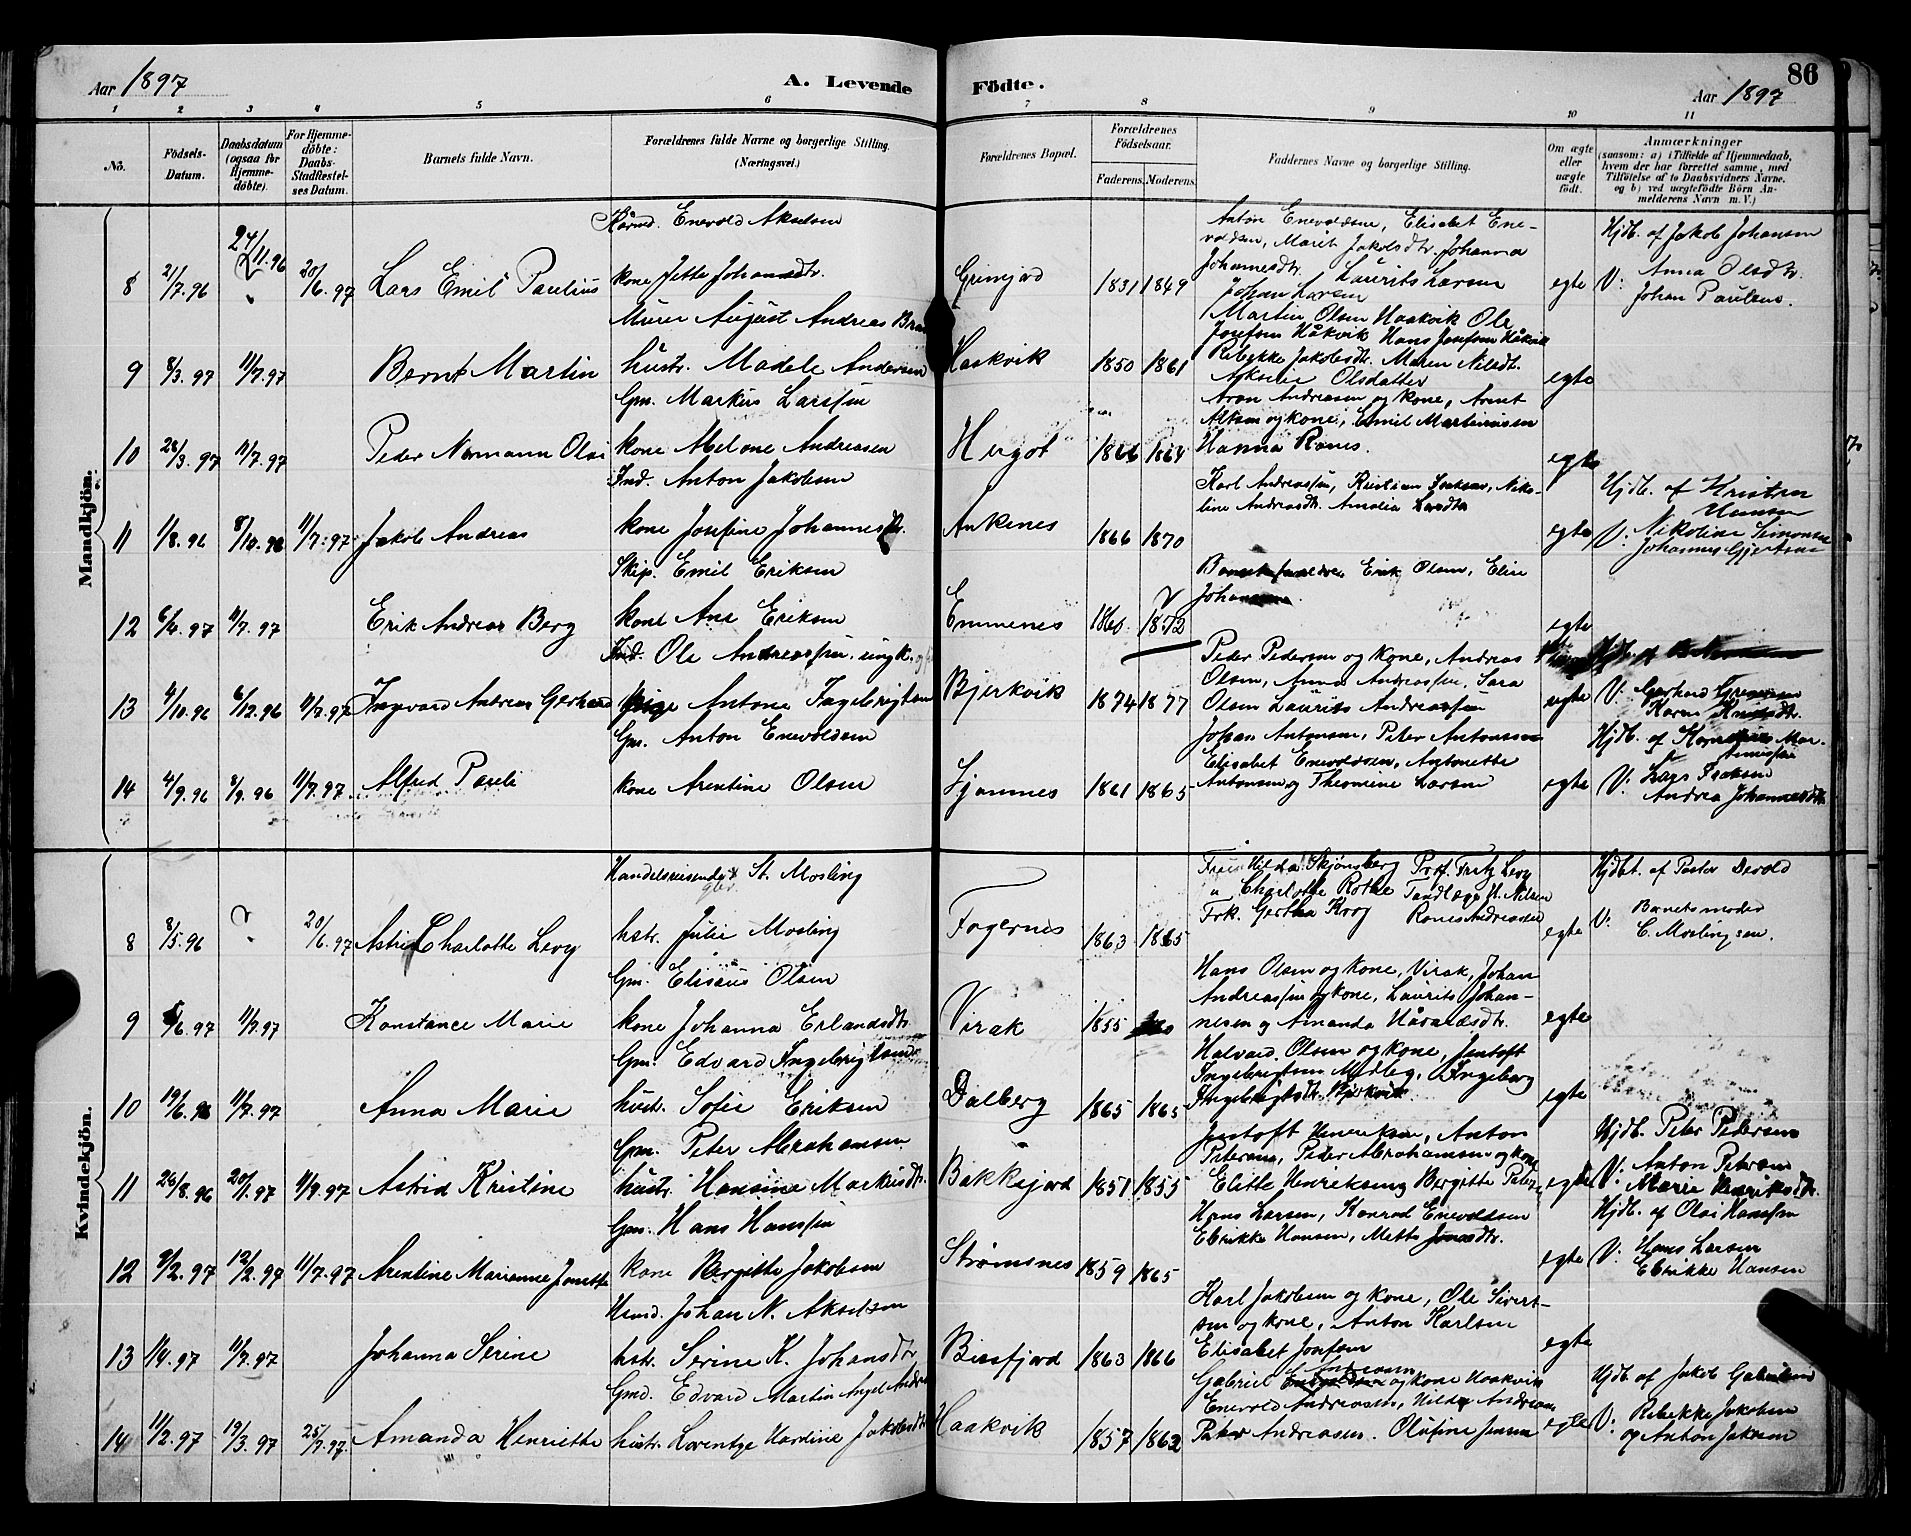 Aar 1897
A. Levende
Födte.
86
Aar 1897
1 2 3 4 5 6 7 8 9 10 11
No.
Födsels-Datum.
Daabsdatum (ogsaa for Hjemme-döbte).
For Hjemme-döbte: Daabs-Stadfæstel-ses Datum.
Barnets fulde Navn.
Forældrenes fulde Navne og borgerlige Stilling. (Næringsvei.)
Forældrenes Bopæl.
Forældrenes Födselsaar.
Faderens. Moderens.
Faddernes Navne og borgerlige Stilling.
Om ægte eller uægte født.
Anmærkninger
(saasom: a) i Tilfælde af Hjemmedaab, hvem der har forrettet samme, med Tilföielse af to Daabsvidners Navne. og b) ved uægtefödte Börn An-melderens Navn m. V.)
Mandkjön.
8 21/7.96 24/11.96 20/6.97 Lars Emil Paulius
Enevold Akselsen
kone Jette Johansdtr.
Grinjord 1831 1849
Anton Enevoldsen, Elisabet Ene-
voldsen, Maret Jakobsdtr. Johanna
Johannesdtr. Laurits Larsen
Johan Larsen
egte
Hjdb. af Jakob Johansen
V: Anna Olsdtr.
Johan Paulsen.
9 8/3.97 11/7.97 Bernt Martin
Murer August Andreas
hustr. Madele Andersen
Haakvik 1850 1861
Martin Olsen Haakvik Ole
Josefsen Håkvik Hans Josefsen Håkvik
Rebekke Jakobsdtr. Maren Nilsdt.
Olsdatter
egte
10 28/3.97 11/7.97 Peder Normann Olai
Gm. Markus Larssen
kone Melone Andreasen
Hergot 1866 1864
Aron Andreasen og kone, Arent
og kone, Emil Martinusen
Hanna Rones.
egte
11 1/8.96 8/10.96 11/7.97 Jakob Andreas
Ind. Anton Jakobsen
kone Josefine Johannesdtr.
Ankenes 1866 1870
Karl Andreassen, Kristian Isaksen, Niko-
line Andreasdtr. Amalia Larsdtr
egte
Hjdb. af Kristen
Hansen
V: Nikoline Simonsen
Johannes Gjertsen
12 6/4.97 11/7.97 Erik Andreas Berg
Skip. Emil Eriksen
kone Ane Eriksen
Emmenes 1860 1872
Erik Olsen, Elen
Johansen
egte
13 4/10.96 6/12.96 11/7.97 Ingvard Andreas Gerhard
Ind. Ole Andreassen. ungk.
pige Antone Ingebrigtsen
Bjerkvik 1874 1877
Peder Pedersen og kone, Andreas
Olsen, Anna Andreassen, Sara
Olsen Laurits Andreassen
uegte
V: Gerhard
Karen
14 4/9.96 8/9.96 11/7.97 Alfred Pareli
Gm. Anton Enevoldsen
kone Arentine Olsen
Ljønnes 1861 1865
Johan Antonsen, Peter Antonsen
Elisabet Enevoldsen, Antonette
Antonsen og Theomine Larsen
egte
Hjdb. af Mar-
V: Lars Isaksen
Andrea Johannesdtr.
Kvindekjön.
8 8/5.96 ? 20/6.97 Astrid Charlotte Levy
Handelsreisende St. Mosling
hstr. Julie Mosling
Fagernes 1863 1865
Frøis Hilda Skjønsberg Prof. Fritz Levy
" Charlotte Rothe Tandlæge H. Nilsen
Frk. Gertha Krog Rones Andreassen
egte
Hjdbt. af Pastor Devold
V: Barnets moder
C. Mosling sen.
9 5/6.97 11/7.97 Konstance Marie
Gm. Elisæus Olsen
kone Johanna Erlandsdtr.
Virak 1855
Hans Olsen og kone, Virak, Johan
Andreassen og kone, Laurits Johan-
nesen og Amanda Håraldsdtr.
egte
10 19/6.96 11/7.97 Anna Marie
Gm. Edvard Ingebrigtsen
hustr. Sofie Eriksen
Dalberg 1865 1865
Halvard. Olsen og kone, Jentoft
Ingebrigtsen Medleg, Ingeborg
Ingebrigtsdtr. Bjerkvik
egte
11 26/8.96 20/1.97 11/7.97 Astrid Kristine
Gm. Peter Abrahamsen
hustr. Hansine Markusdtr.
Bakkejord 1851 1855
Jentoft Henriksen, Anton
Petersen, Peder Abrahamsen og kone
Elitte Henriksen og Bergitte Peters
egte
Hjdb. Peter Pedersen
V: Anton Petersen
Marie Henriksdtr.
12 9/2.97 12/2.97 11/7.97 Arentine Marianne Jonette
Gm. Hans Hanssen
kone Bergitte Jakobsen
Strømsnes 1859 1865
Hans Larsen, Konrad Enevoldsen
Elrikke Hansen, Mette Jonasdtr.
egte
Hjdb. af Olai Hanssen
V: Hans Larsen
Elrikke Hansen
13 1/4.97 11/7.97 Johanna Serine
Hmd. Johan N. Akselsen
hstr. Serine K. Johansdtr
Beisfjord 1863 1866
Karl Jakobsen og kone, Ole Sivert-
sen og kone, Anton Karlsen
Elisabet Josefsen
egte
14 11/2.97 19/3.97 25/7.97 Amanda Henriette
Gmd. Edvard Martin Angel Andre
hustr. Lorentze Hardine Jakobsdtr
Haakvik 1857 1862
Gabriel Andreasen og kone Haakvik
Enevold Andreasen, Hilda Andreasen
Peter Andreasen. Olufine Jensen
egte
Hjdb. af Jakob Gabrielsen
V: Rebekke Jakobsen
og Anton Jakobsen